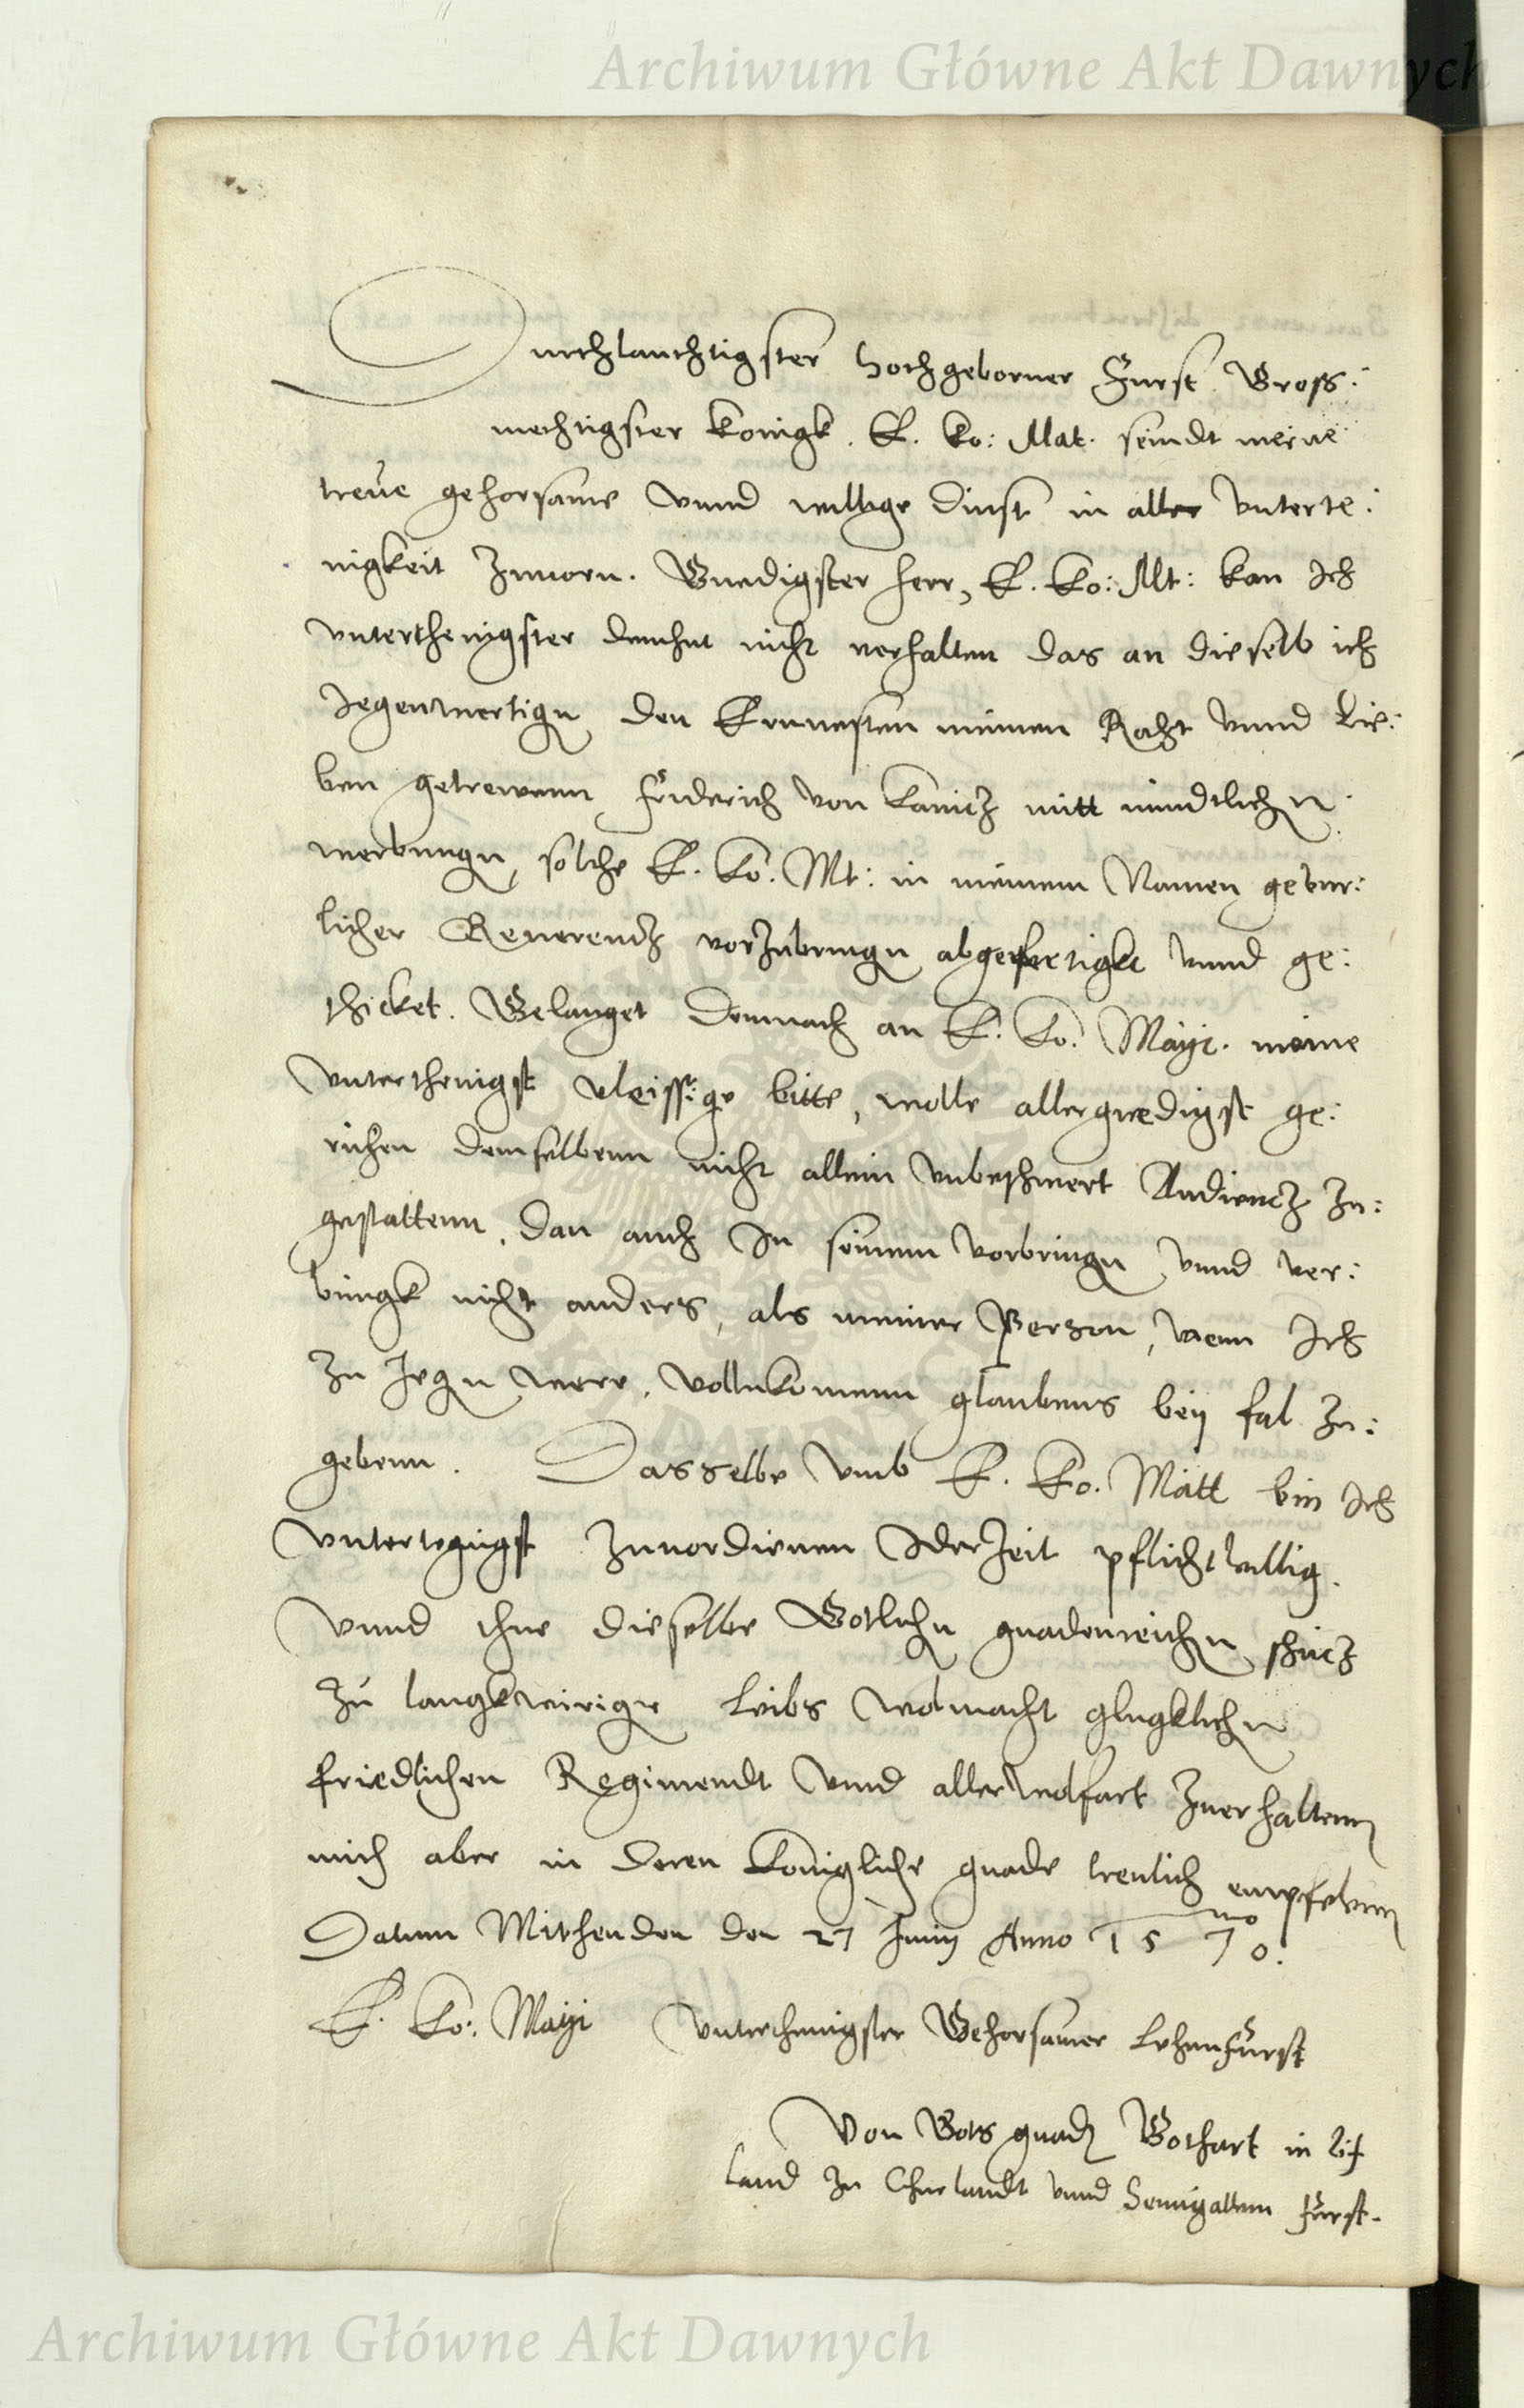 Archiwum Główne Akt Dawnych
Durchlauchtigster hochgeborner Furst Gross:
mechtigster Konigk. E. Ko: Mat. seindt meine
treue gehorsame vnnd willige dinst in aller vnterte:
nigkeit zuuorn. Gnedigster herr, E. Ko: Mt: kan Ich
vnterthenigster demuht nicht verhalten das an dieselb ich
Jegenwertign den Ernuesten meinen Raht vnnd Lie:
ben getrewenn Friderich von Kanitz mitt mundtlichn
werbungn solche E. Ko. Mt: in meinem Namen gebur:
licher Reuerentz vorzubringn abgefertigkt vnnd ge:
schicket. Gelanget demnach an E. Ko. Mayt. meine
vnterthenigst vleissige bitte, wolle allergnedigst ge:
ruhen demselbenn nicht allein vnbeschwert Audientz zu:
gestattenn, dan auch In seinem vorbringn vnnd wer:
bungk nicht anders, als meiner Person, wenn Ich
zu Jegn were, vollnkomenn glaubens bey fal zu:
gebenn. Dasselbe vmb E. Ko. Matt bin Ich
vntertenigst zuuordienen Iderzeit pflichtwillig.
Vnnd thue dieselbe Gotlichn gnadenreichn schutz
zu langkwiriger leibs wolmacht glugklichn
friedlichen Regimendt vnnd aller wolfart zuerhaltenn
mich aber in deren Konigliche gnade treulich empfelenn
Datum Mitthenden den 27 Junij Anno 1570.
E. Ko: Mayt vnterthenigster Gehorsamer Lehenfurst
Von Gots gnadn Gothart in Lif
land zu Churlandt vnnd Semigallenn furst.
Archiwum Główne Akt Dawnych